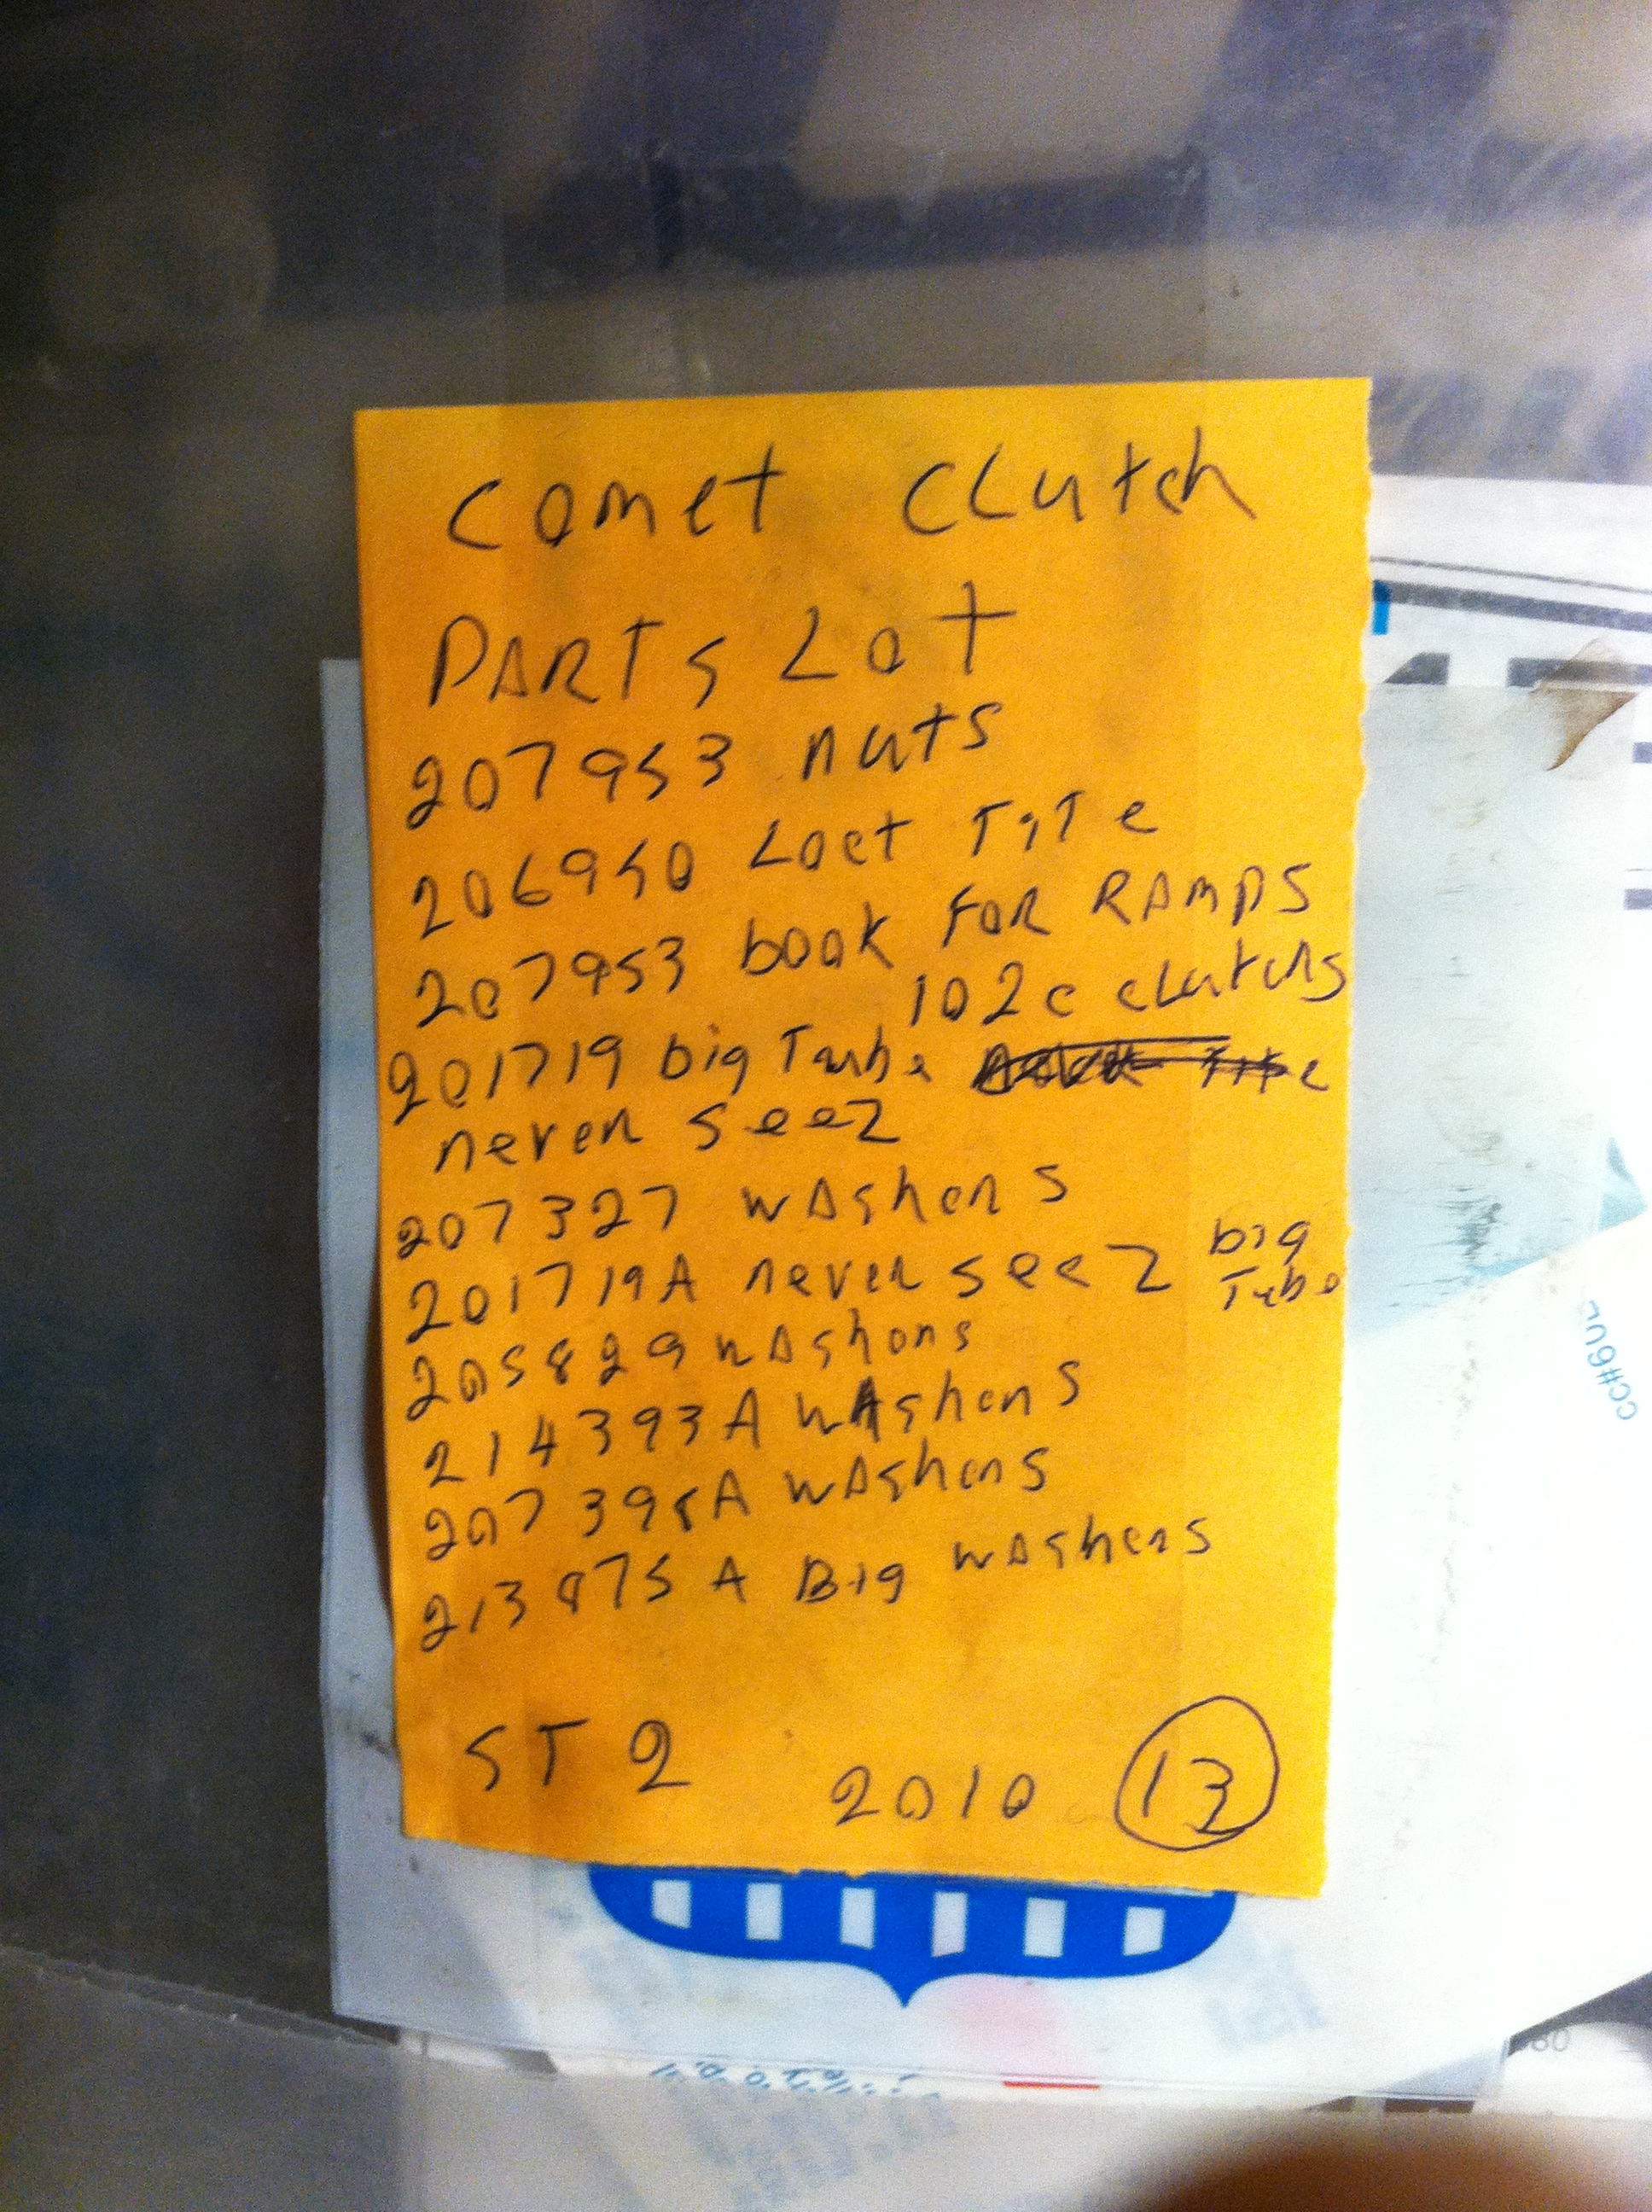 Comet CLutch
PARTS LOT
207953 nuts
206950 Loct TiTe
207953 book FOR RAMPS
102c cLutchs
201719 big Tube
never seez
207327 WAshers
201719A never seez big Tube
205829 WAshers
214393A WAshers
207398A WAshers
213875A Big WAshers
ST2 2010 13
CC#6UL